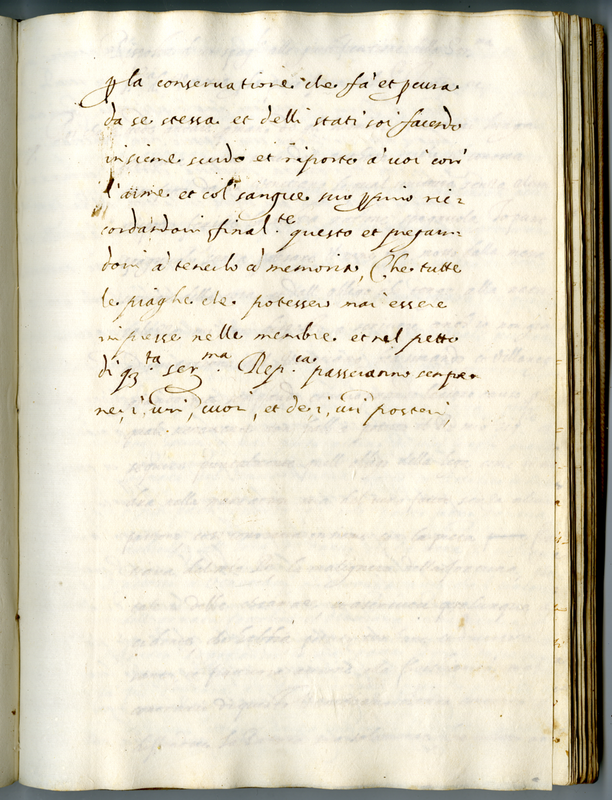 p la conservatione che fà et pcura
da se stessa et delli stati soi facendo
insieme scudo et riporto à voi con
l'arme et col sangue suo pprio ric=
cordandovi final.te questo et pregan=
dovi à tenerlo à memoria, Che tutte
le piaghe che potessero mai essere
impresse nelle membre et nel petto
di q.ta ser.ma Rep.ca passeranno sempre
ne, i, vri, cuori, et de, i, vri posteri,